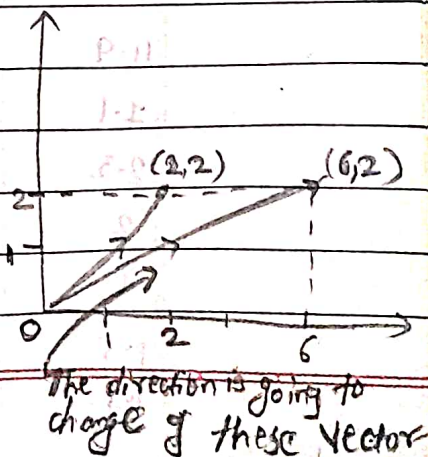 (2,2) (6,2)
2
1
0 1 2 6
The direction is going to
change of these vector